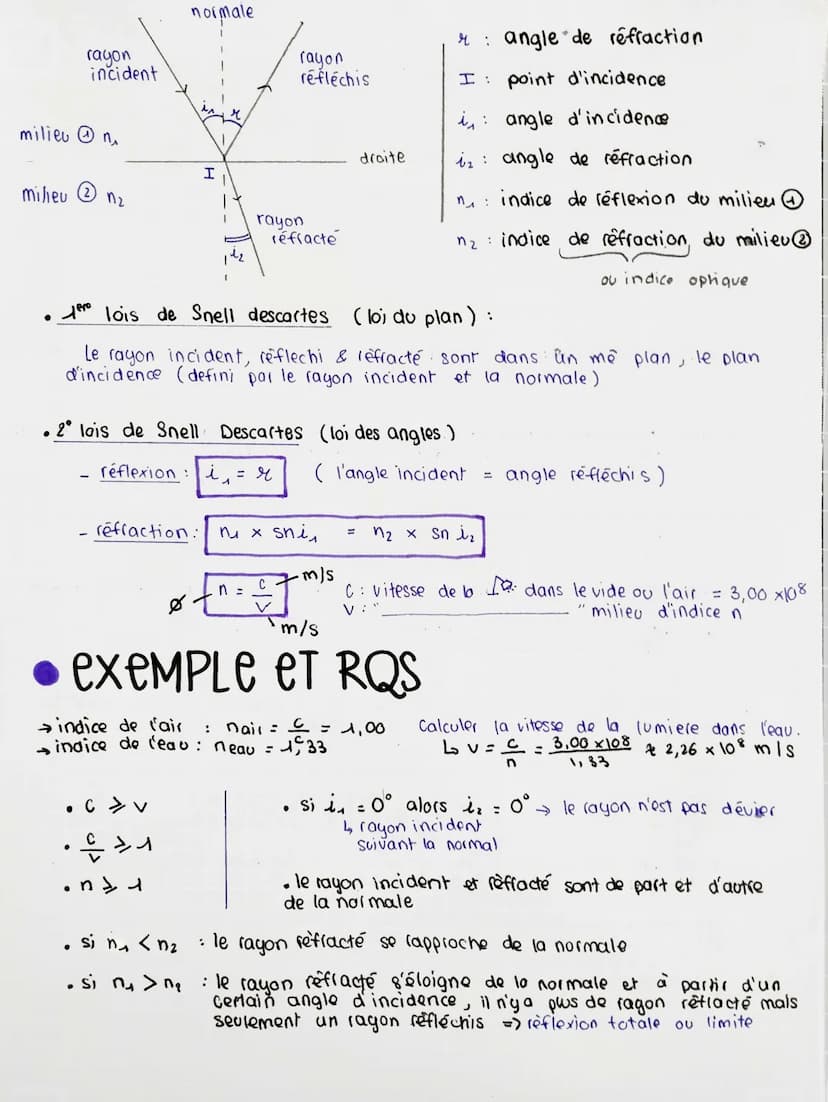 normale
rayon
incident
rayon
réfléchis
i₁ r
milieu ① n₁
droite
I
milieu ② n₂
rayon
réfracté
i₂
r : angle de réfraction
I : point d'incidence
i₁ : angle d'incidence
i₂ : angle de réfraction
n₁ : indice de réflexion du milieu ①
n₂ : indice de réfraction du milieu ②
ou indice optique
• 1ere lois de Snell descartes (loi du plan) :
Le rayon incident, réflechi & réfracté sont dans un mê plan, le plan
d'incidence (defini par le rayon incident et la normale)
• 2° lois de Snell Descartes (loi des angles)
- réflexion : i₁ = r ( l'angle incident = angle réfléchis)
- réfraction : n₁ × sni₁ = n₂ × sn i₂
m/s
∅ n = c/v
m/s
C : vitesse de la dans le vide ou l'air = 3,00 ×10⁸
V : " " milieu d'indice n
• EXEMPLE ET RQS
→ indice de l'air : nair = c/c = 1,00
→ indice de l'eau : neau = 1,33
Calculer la vitesse de la lumiere dans l'eau.
↳ v = c/n = 3,00 ×10⁸/1,33 ≈ 2,26 × 10⁸ m/s
• c ⩾ v
• c/v ⩾ 1
• n ⩾ 1
• si i₁ = 0° alors i₂ = 0° → le rayon n'est pas dévier
↳ rayon incident
suivant la normal
• le rayon incident et réfracté sont de part et d'autre
de la normale
• si n₁ < n₂ : le rayon réfracté se rapproche de la normale
• si n₁ > n₂ : le rayon réfracté s'éloigne de la normale et à partir d'un
certain angle d'incidence, il n'y a plus de rayon réfracté mais
seulement un rayon réfléchis => réflexion totale ou limite